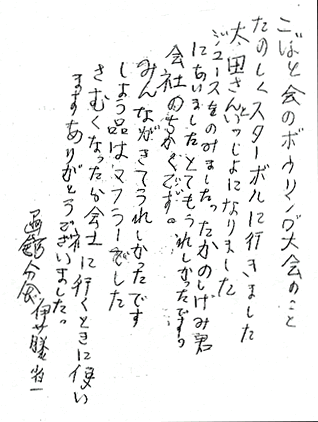 ごばと会のボウリング大会のこと
たのしくスターボルに行きました
太田さんといっしょになりました
ジュースをのみましたったかのしげみ君
にあいましたとてもうれしかったですっ
会社のちかくです。
みんながきてうれしかったです
しょう品はマフラーでした
さむくなったから会社に行くときに使い
ますありがとうございましたっ
函館分会 伊藤